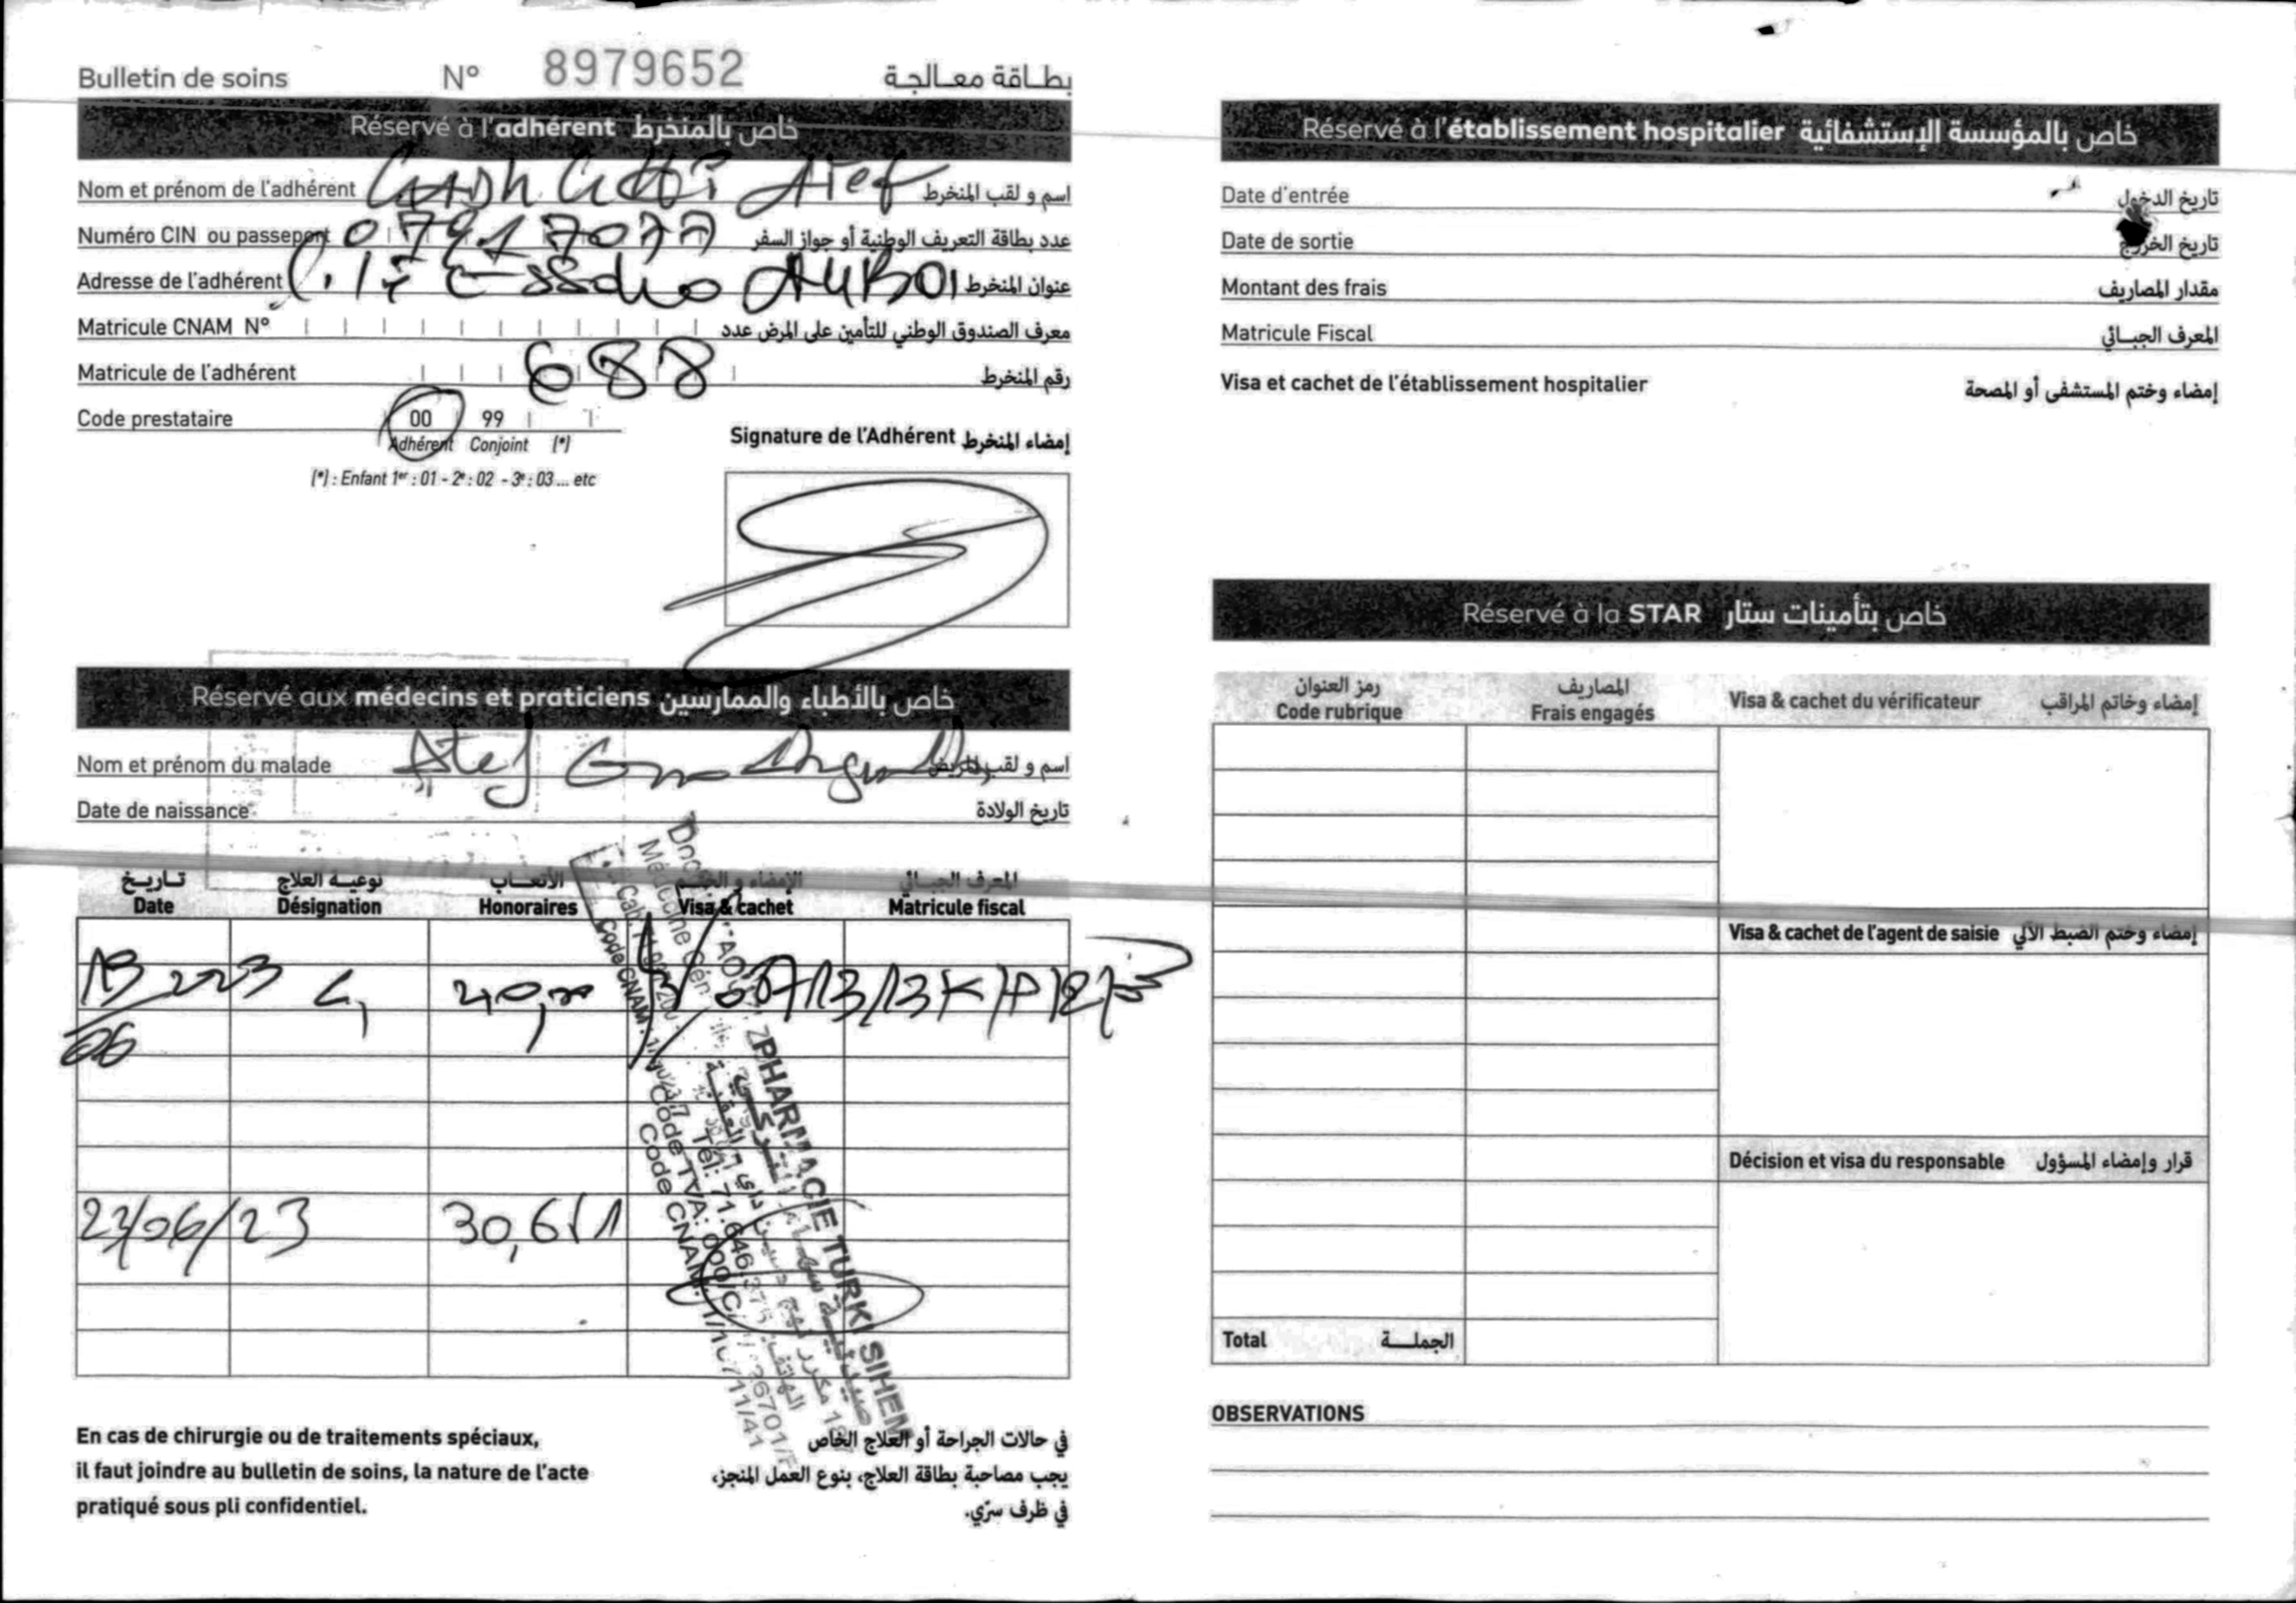 Bulletin de soins N° 8979652 بطاقة معالجة
Réservé à l'adhérent خاص بالمنخرط
Nom et prénom de l'adhérent Atef اسم و لقب المنخرط
Numéro CIN ou passeport عدد بطاقة التعريف الوطنية أو جواز السفر
Adresse de l'adhérent عنوان المنخرط
Matricule CNAM N° معرف الصندوق الوطني للتأمين على المرض عدد
Matricule de l'adhérent 688 رقم المنخرط
Code prestataire 00 99
Adhérent Conjoint (*)
(*) : Enfant 1er : 01 - 2e : 02 - 3e : 03 ... etc
Signature de l'Adhérent إمضاء المنخرط
Réservé aux médecins et praticiens خاص بالأطباء والممارسين
Nom et prénom du malade Atef اسم و لقب المريض
Date de naissance تاريخ الولادة
تاريخ نوعية العلاج الأتعاب الإمضاء و الختم المعرف الجبائي
Date Désignation Honoraires Visa & cachet Matricule fiscal
06
23/06/23 30,611
PHARMACIE TURKI SIHEM
Tél: 71.646.375
Code TVA: 000/C
Code CNAM: 1/10711/41
En cas de chirurgie ou de traitements spéciaux,
il faut joindre au bulletin de soins, la nature de l'acte
pratiqué sous pli confidentiel.
في حالات الجراحة أو العلاج الخاص
يجب مصاحبة بطاقة العلاج، بنوع العمل المنجز،
في ظرف سرّي.
Réservé à l'établissement hospitalier خاص بالمؤسسة الإستشفائية
Date d'entrée تاريخ الدخول
Date de sortie تاريخ الخروج
Montant des frais مقدار المصاريف
Matricule Fiscal المعرف الجبائي
Visa et cachet de l'établissement hospitalier إمضاء وختم المستشفى أو المصحة
Réservé à la STAR خاص بتأمينات ستار
رمز العنوان المصاريف
Code rubrique Frais engagés Visa & cachet du vérificateur إمضاء وخاتم المراقب
Visa & cachet de l'agent de saisie إمضاء وختم الضبط الآلي
Décision et visa du responsable قرار وإمضاء المسؤول
Total الجملة
OBSERVATIONS